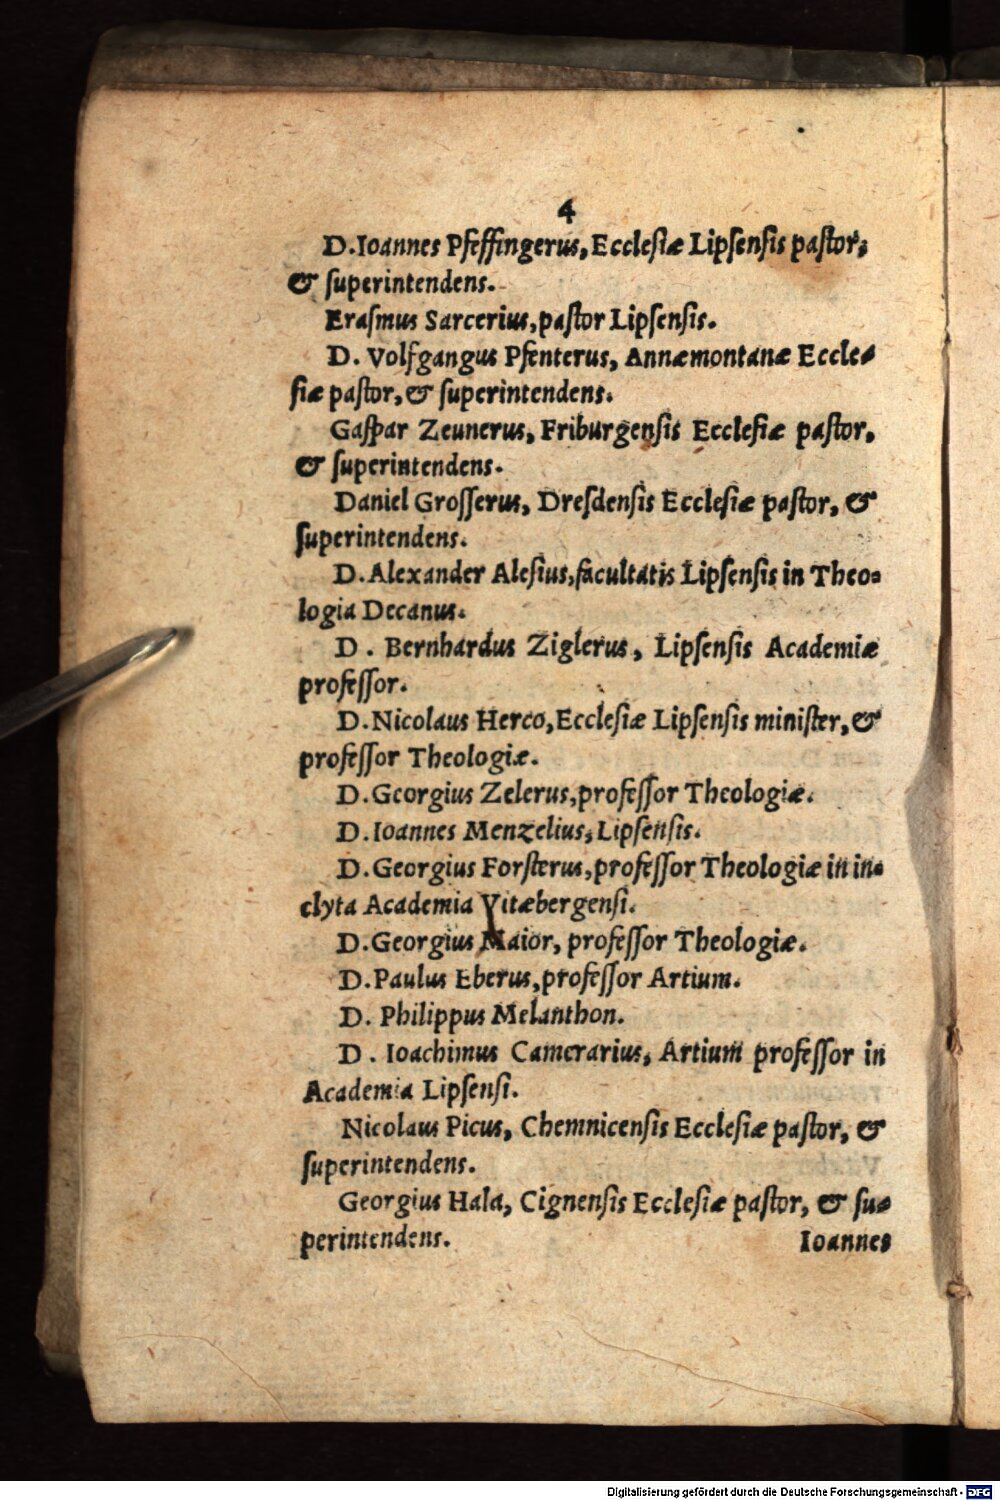 4
D.Ioannes Pfeffingerus, Ecclesiæ Lipsensis pastor,
& superintendens.
Erasmus Sarcerius, pastor Lipsensis.
D. Volfgangus Pfenterus, Annæmontanæ Eccle-
siæ pastor, & superintendens.
Gaspar Zeunerus, Friburgensis Ecclesiæ pastor,
& superintendens.
Daniel Grosserus, Dresdensis Ecclesiæ pastor, &
superintendens.
D.Alexander Alesius, facultatis Lipsensis in Theo-
logia Decanus.
D. Bernhardus Ziglerus, Lipsensis Academiæ
professor.
D.Nicolaus Herco, Ecclesiæ Lipsensis minister, &
professor Theologiæ.
D.Georgius Zelerus, professor Theologiæ.
D.Ioannes Menzelius, Lipsensis.
D.Georgius Forsterus, professor Theologiæ in in-
clyta Academia Vitæbergensi.
D.Georgius Maior, professor Theologiæ.
D.Paulus Eberus, professor Artium.
D. Philippus Melanthon.
D. Ioachimus Camerarius, Artium professor in
Academia Lipsensi.
Nicolaus Picus, Chemnicensis Ecclesiæ pastor, &
superintendens.
Georgius Hala, Cignensis Ecclesiæ pastor, & su-
perintendens.
Ioannes
Digitalisierung gefördert durch die Deutsche Forschungsgemeinschaft - DFG